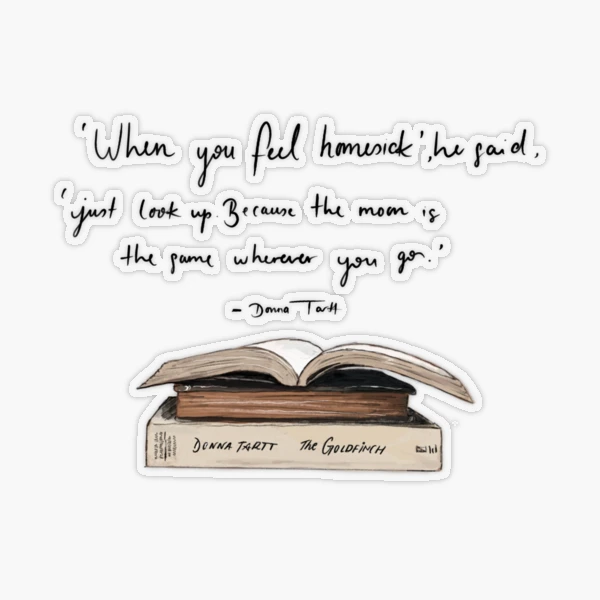 'When you feel homesick', he said,
'just look up. Because the moon is
the same wherever you go.'
- Donna Tartt
DONNA TARTT The GOLDFINCH